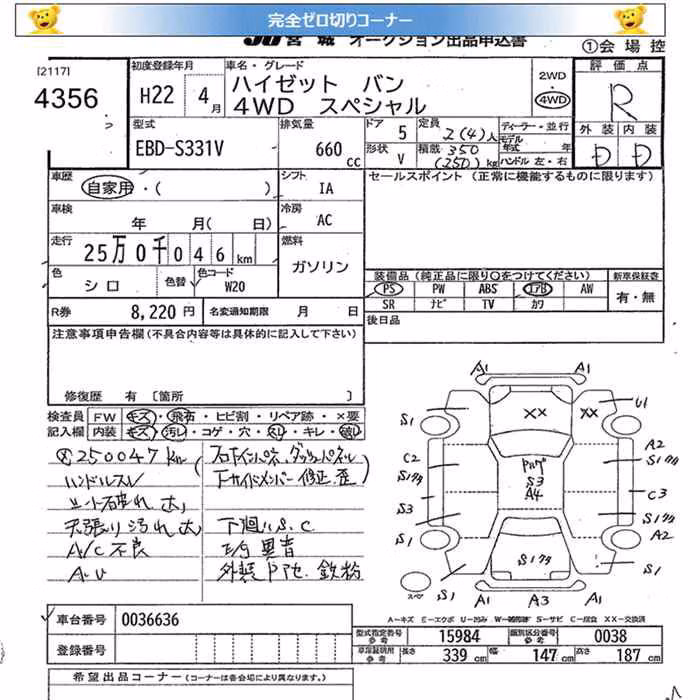 完全ゼロ切りコーナー
JU 宮城 オークション出品申込書
①会場控
[2117]
4356
初度登録年月
H22 4月
車名・グレード
ハイゼット バン
4WD スペシャル
2WD
・
4WD
評価点
R
型式
EBD-S331V
排気量
660 cc
ドア 5
形状 V
定員 2(4)人
積載 350
(250)kg
ディーラー・並行
モデル
年式 年
ハンドル 左・右
外装 内装
D D
車歴
自家用・( )
シフト IA
セールスポイント (正常に機能するものに限ります)
車検
年 月( 日)
冷房 AC
走行
25万0千046km
燃料
ガソリン
色
シロ
色替
色コード
W20
装備品(純正品に限り○をつけてください)
新車保証書
PS PW ABS エアB AW
SR ナビ TV カワ
有・無
R券 8,220 円
名変通知期限 月 日
後日品
注意事項申告欄(不具合内容等は具体的に記入して下さい)
修復歴 有 [箇所 ]
検査員 FW キズ・飛石・ヒビ割・リペア跡・×要
記入欄 内装 キズ・汚レ・コゲ・穴・スレ・キレ・破レ
250047km
ハンドルスレ
シート破れ 大
天張り汚れ大
A/C不良
下廻りS.C
異音
鉄粉
A1 A1
S1 XX XX U1
C2 A2
S3 A4
S3 C3
S1 A2
S1 A1 A3 A1 S1
A-キズ E-エクボ U-凹み S-サビ C-腐食 XX-交換済
車台番号 0036636
登録番号
型式指定番号 参考 15984
類別区分番号 参考 0038
車庫証明用 参考 長さ 339 cm 幅 147 cm 高さ 187 cm
希望出品コーナー(コーナーは各会場により異なります。)